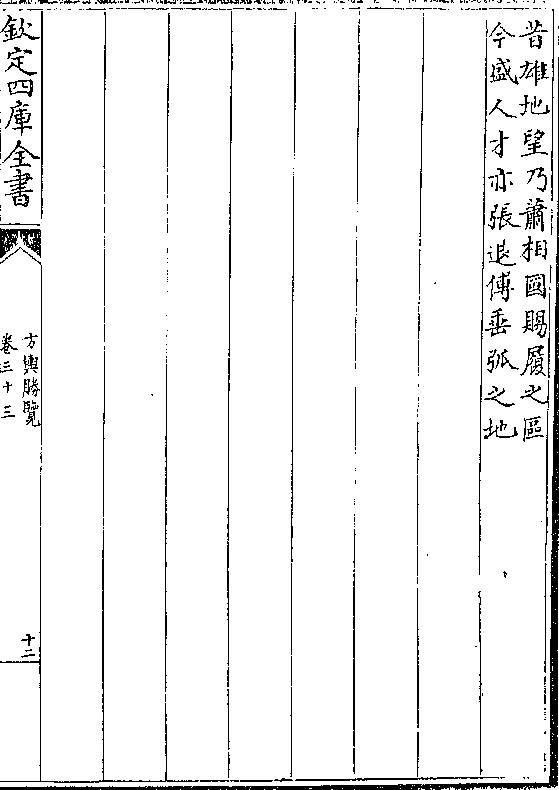 昔雄地望乃蕭相國賜履之區
今盛人才亦張退傅垂弧之地
欽定四庫全書
方輿勝覽
卷三十三
十二